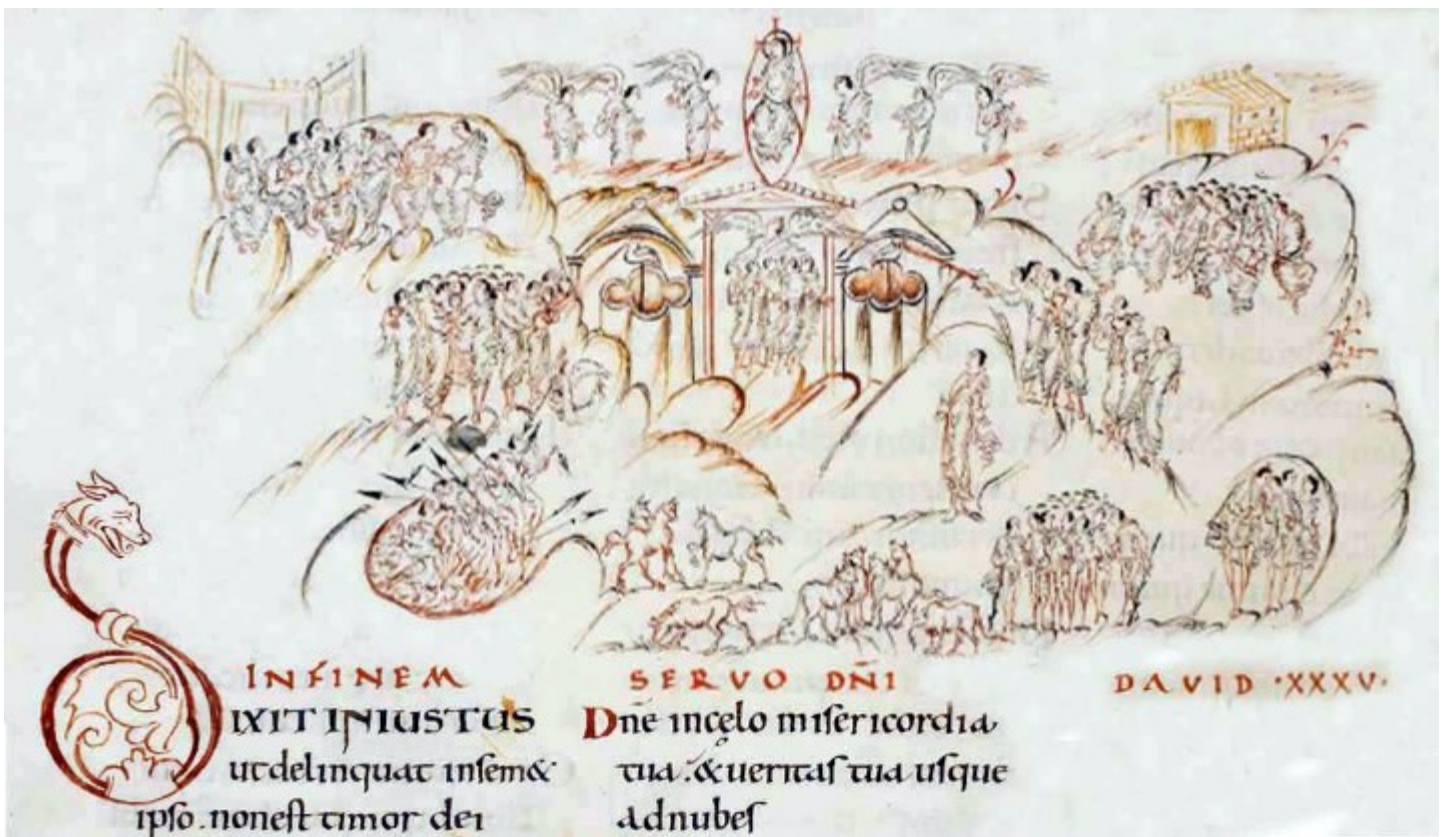 INFINEM SERVO DN̄I DAVID ·XXXV·
DIXIT INIUSTUS
utdelinquat insem&
ipso. nonest timor dei
Dn̄e incęlo misericordia
tua. &ueritas tua usque
adnubes